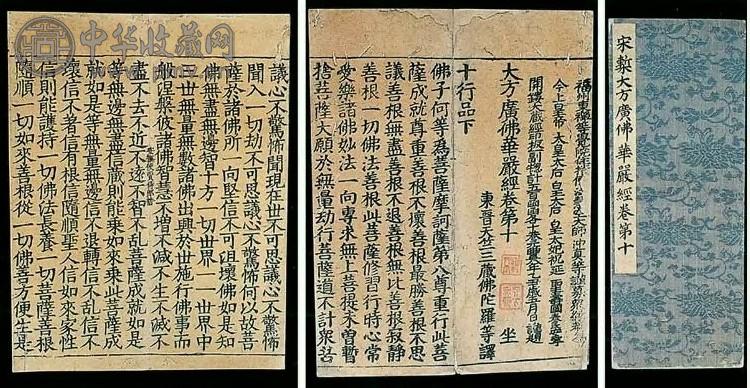 中华收藏网
宋槧大方廣佛華嚴經卷第十
福州東禪等覺院住持大師沖真等謹募衆緣
今上皇帝 太皇太后 皇太后 皇太妃祝延 聖壽國泰民安
開鏤大藏經板一副總計五百
大方廣佛華嚴經卷第十 坐
東晉天竺三藏佛陀羅等譯
十行品下
佛子何等為菩薩摩訶薩第八尊重行此菩
薩成就尊重善根不壞善根最勝善根不思
議善根無盡善根不退善根無比善根寂靜
善根一切佛法善根此菩薩修習行時心常
愛樂諸佛妙法一向專求無上菩提未曾暫
捨菩薩大願於無量劫行菩薩道不計衆苦
議心不驚怖聞現在世不可思議心不驚怖
聞入一切劫不可思議心不驚怖何以故菩
薩於諸佛所一向堅信不可沮壞佛如是知
佛無盡無邊智十方一切世界一一世界中
三世無量無數諸佛出興於世施行佛事而
般涅槃彼諸佛智慧不增不減不生不滅不
盡不去不近不遠不智不亂菩薩成就如是
等無邊無盡信廣則能乘如來乘此菩薩成
就如是等無量無邊信不退轉信不亂信不
壞信不著信有根信隨順聖人信如來家性
信則能護持一切佛法長養一切菩薩善根
隨順一切如來善根從一切佛善方便生是